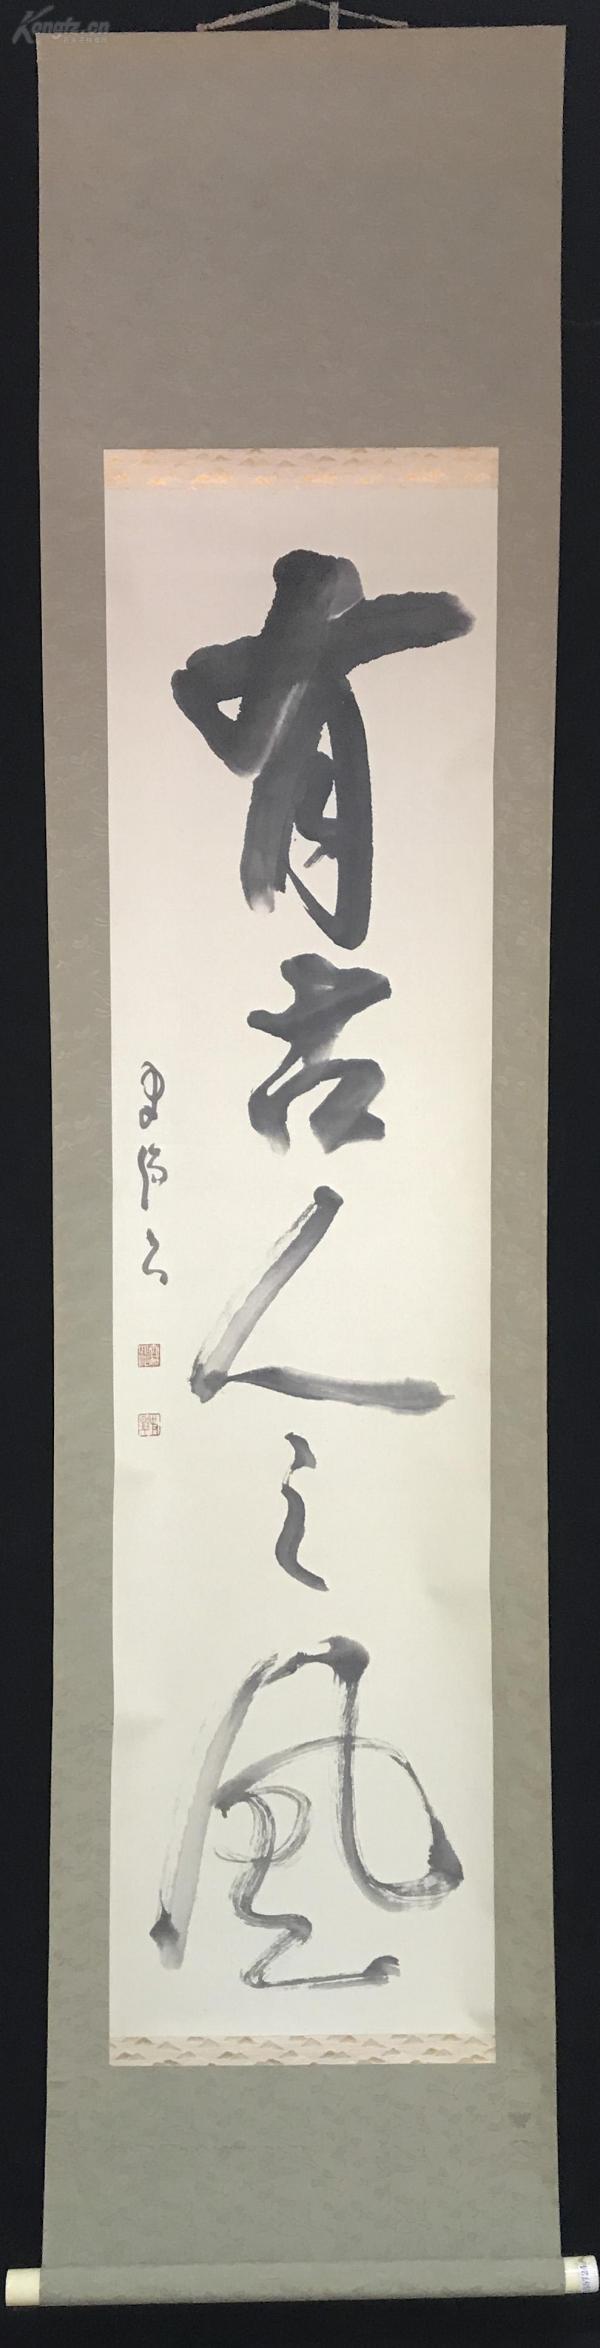 Kongfz.cn
有古人之風